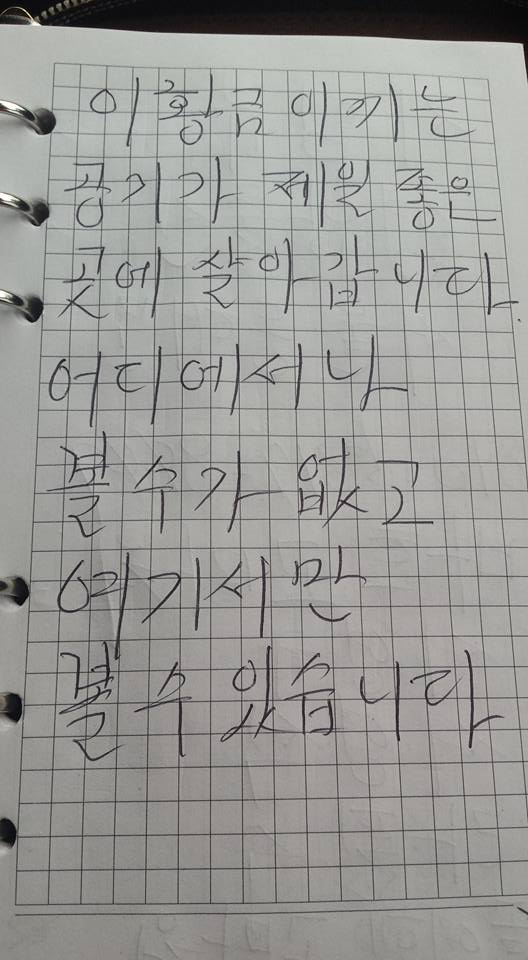 이 황금 이끼는
공기가 제일 좋은
곳에 살아갑니다
어디에서나
볼 수가 없고
여기서만
볼 수 있습니다